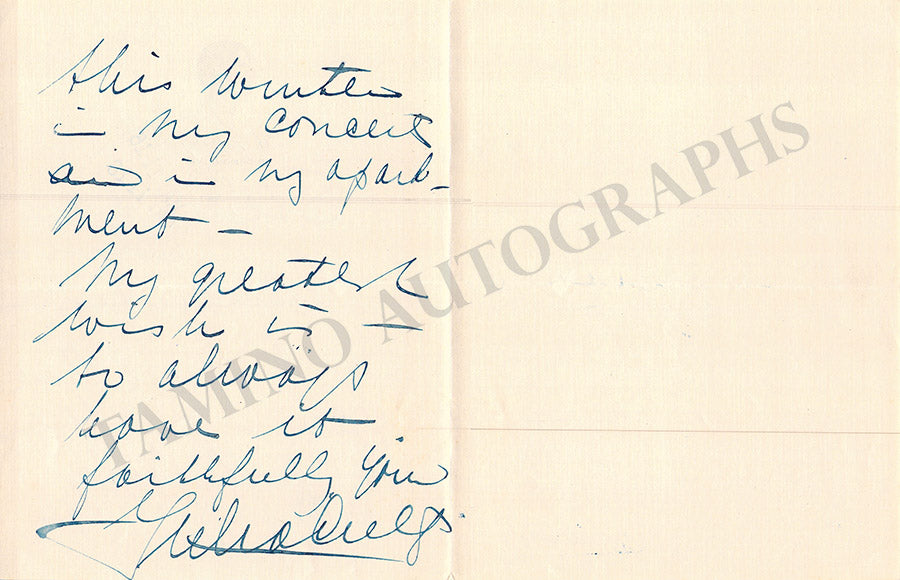 this winter
in my concerts
and in my apart-
ment –
My greatest
wish is –
to always
have it
faithfully your
TAMINO AUTOGRAPHS